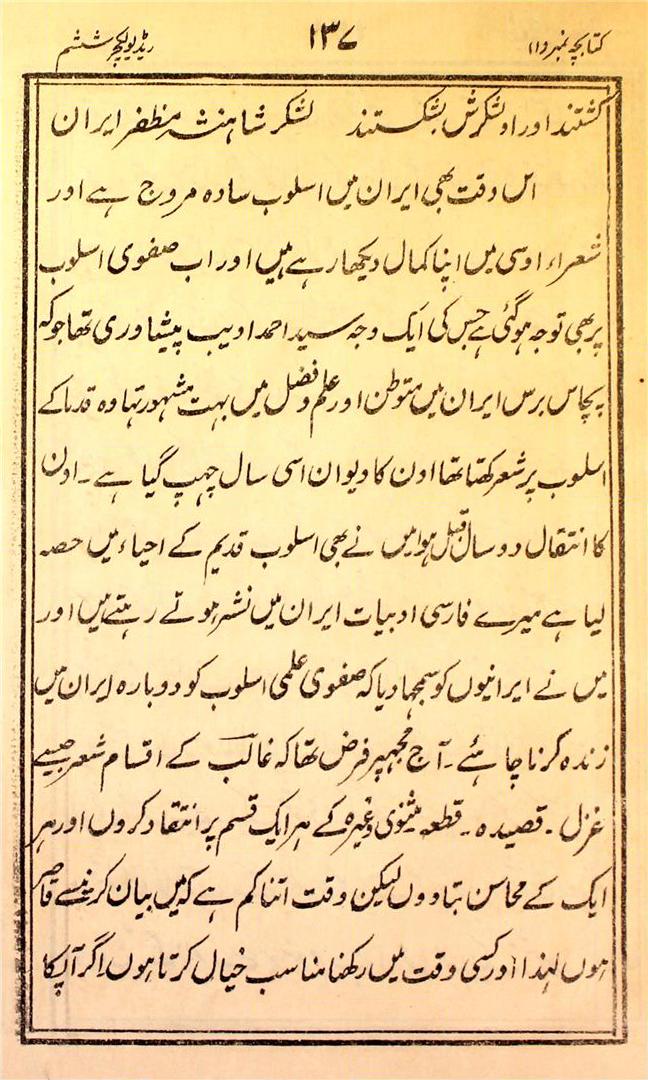 کتابچہ نمبر (۱)
۱۳۷
ریڈیو لکچر ششم
کشتند اور او لشکرش بشکستند لشکر شاہنشہ مظفر ایران
اس وقت بھی ایران میں اسلوب سادہ مروج ہے اور
شعراء اوسی میں اپنا کمال دیکھا رہے ہیں اور اب صفوی اسلوب
پر بھی توجہ ہوگئی ہے جس کی ایک وجہ سید احمد ادیب پیشاوری تھا جو کہ
پچاس برس ایران میں متوطن اور علم و فضل میں بہت مشہور تہا وہ قدما کے
اسلوب پر شعر کہتا تھا اون کا دیوان اسی سال چہپ گیا ہے ۔ اون
کا انتقال دو سال قبل ہوا میں نے بھی اسلوب قدیم کے احیاء میں حصہ
لیا ہے میرے فارسی ادبیات ایران میں نشر ہوتے رہتے ہیں اور
میں نے ایرانیوں کو سمجہا دیا کہ صفوی علمی اسلوب کو دوبارہ ایران میں
زندہ کرنا چاہئے ۔ آج مجہپر فرض تھا کہ غالب کے اقسام شعر جیسے
غزل ۔ قصیدہ ۔ قطعہ مثنوی وغیرہ کے ہر ایک قسم پر انتقاد کروں اور ہر
ایک کے محاسن بتادوں لیکن وقت اتنا کم ہے کہ میں بیان کرنیسے قاصر
ہوں لہذا اور کسی وقت میں رکھنا مناسب خیال کرتا ہوں اگر آپکا